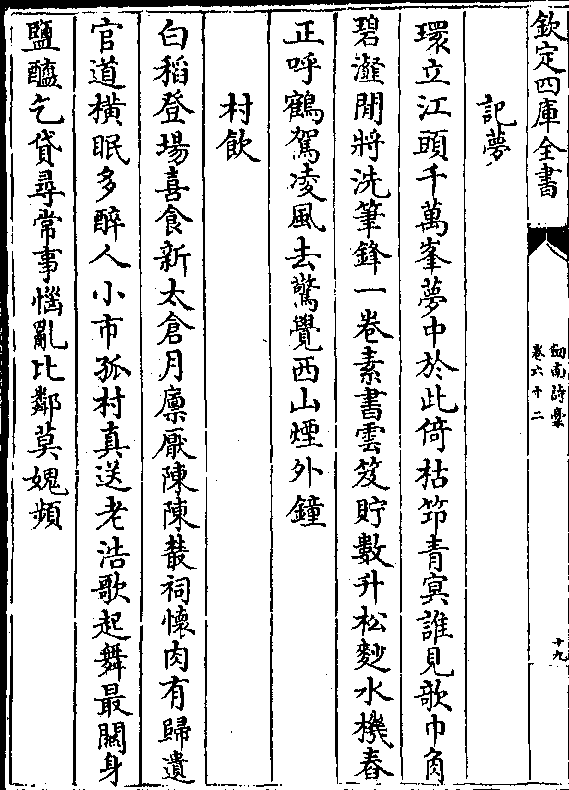 欽定四庫全書
劒南詩槀
卷六十二
十九
記夢
環立江頭千萬峯夢中於此倚枯筇青冥誰見欹巾角
碧瀣閒將洗筆鋒一卷素書雲笈貯數升松麨水機舂
正呼鶴駕凌風去驚覺西山煙外鐘
村飲
白稻登場喜食新太倉月廩厭陳陳叢祠懷肉有歸遺
官道橫眠多醉人小市孤村真送老浩歌起舞最關身
鹽醯乞貸尋常事惱亂比鄰莫媿頻